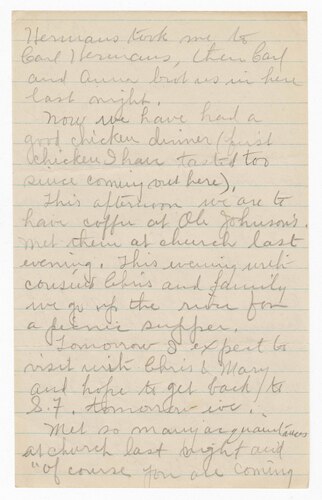 Hermans took me to
Carl Hermans, then Carl
and Anna brot us in here
last night.
Now we have had a
good chicken dinner (first
chicken I have tasted too
since coming out here).
This afternoon we are to
have coffee at Ole Johnson's.
Met them at church last
evening. This evening with
cousin Chris and family
we go up the river for
a picnic supper.
Tomorrow I expect to
visit with Chris & Mary
and hope to get back to
S.F. tomorrow eve.
Met so many acquaintances
at church last night and
"of course you are coming